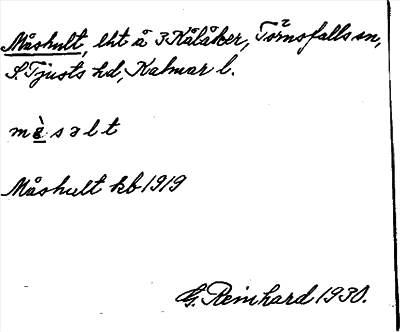 Måshult, lht å 3 Kålåker, Törnsfalls sn,
S. Tjusts hd, Kalmar l.
mὲsəlt
Måshult kb 1919
G. Reinhard 1930.